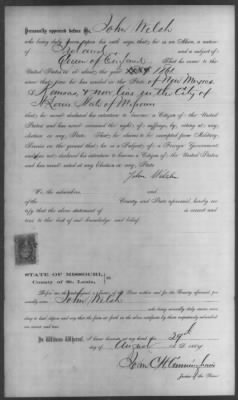 Personally appeared before Me, John Welsh
who being duly sworn upon his oath says, that he is an Alien, a native
of Ireland and a subject of
Queen of England That he came to the
United States in or about the year 1861
since that time he has resided in the State of New Mexico
Kansas, & now lives in the City of
St Louis State of Missouri
that he never declared his intention to become a Citizen of the United
States and has never exercised the right of suffrage, by voting at any
election in any State. That he claims to be exempted from Military
Service on the ground that he is a Subject of a Foreign Government
and has not declared his intention to become a Citizen of the United States
and has never voted at any Election in any State
John Welsh
We, the subscribers and
of the County and State aforesaid, hereby cer-
tify that the above statement of is correct and
true to the best of our knowledge and belief.
STATE OF MISSOURI,
County of St. Louis, ss.
Before me, a of the Peace within and for the County aforesaid per-
sonally came John Welsh
who being severally duly sworn
are correct and true.
In Witness Whereof, I hereunto set my hand this 29th
day of August A.D. 1864
John C H Cunningham
Justice of the Peace